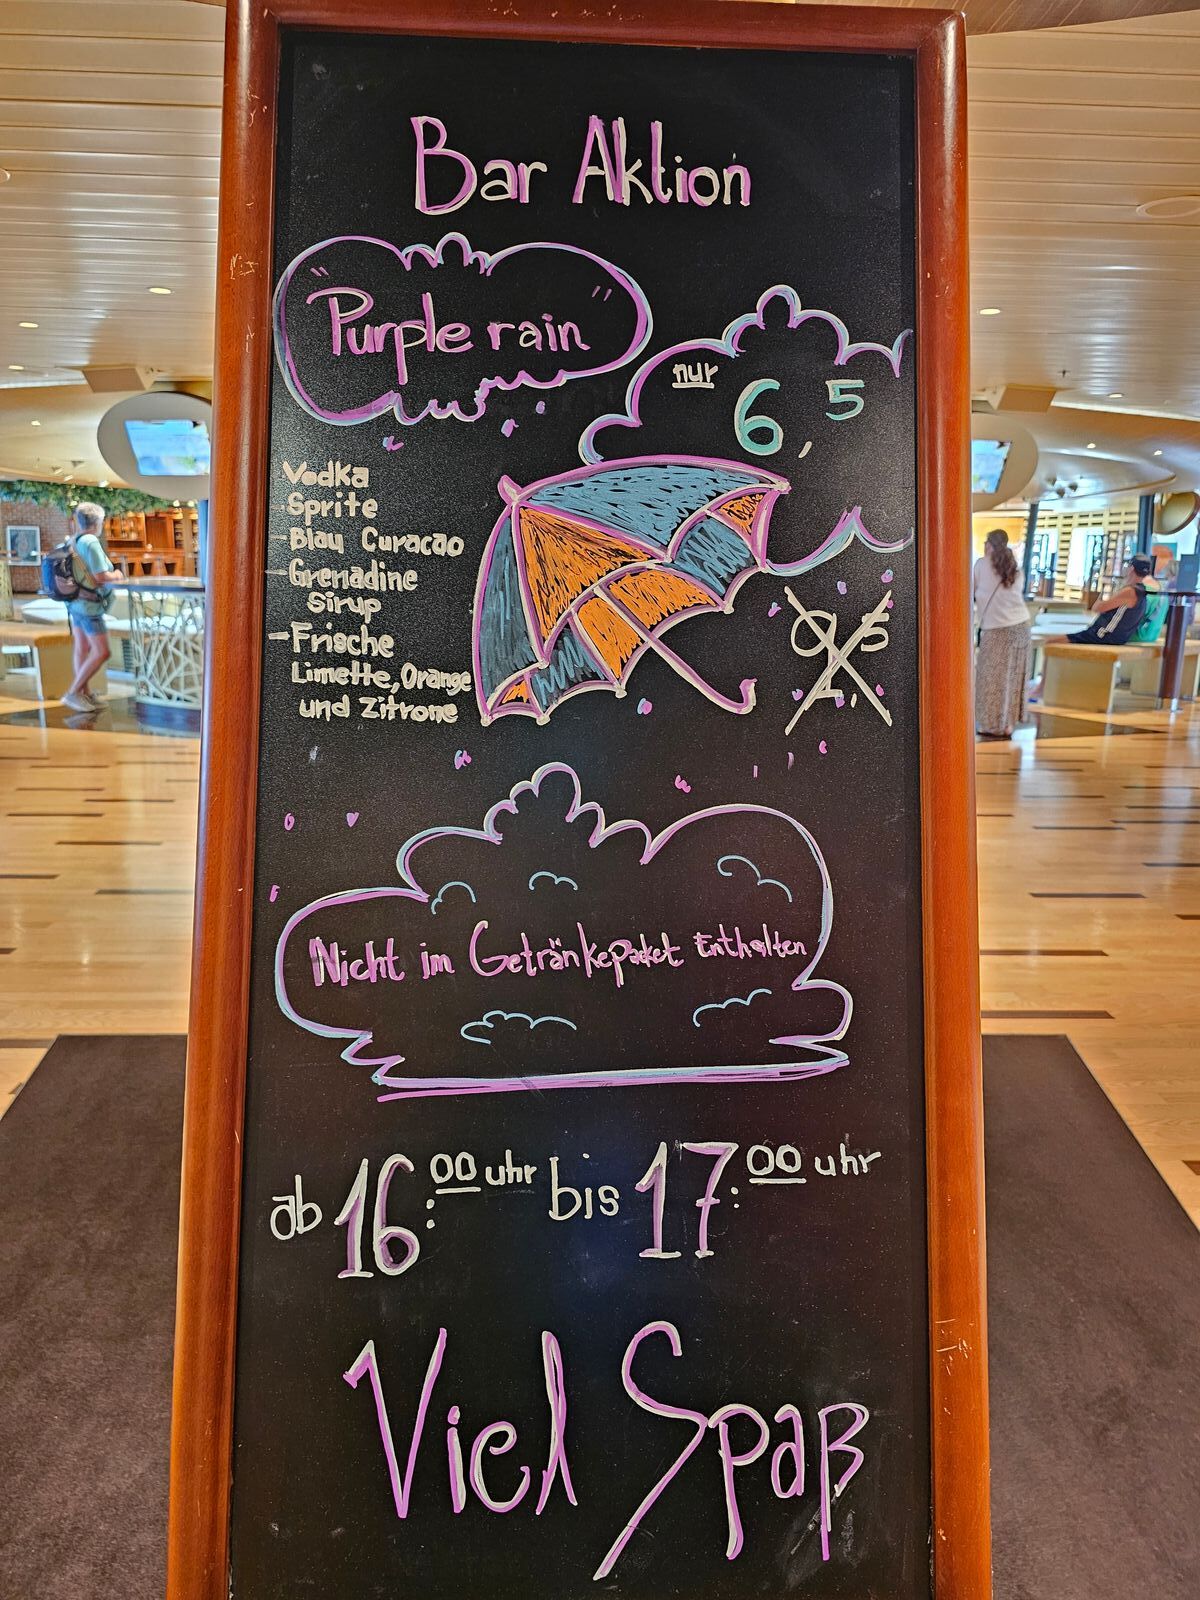 Bar Aktion
"Purple rain"
nur
6,5
Vodka
Sprite
-Blau Curacao
-Grenadine
Sirup
-Frische
Limette, Orange
und Zitrone
Nicht im Getränkepaket Enthalten
ab 16:00 uhr bis 17:00 uhr
Viel Spaß